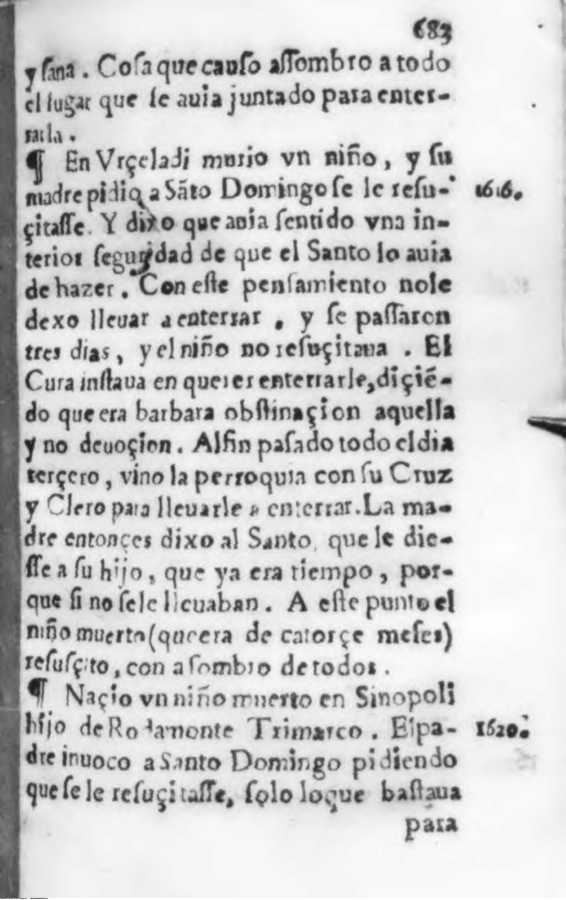 683
y sana. Cosa que causo assombro a todo
el lugar que se auia juntado para enter-
rarla.
¶ En Vrçeladi murio vn niño, y su
madre pidio a Sãto Domingo se le resu- 1616.
çitasse. Y dixo que auia sentido vna in-
terior seguridad de que el Santo lo auia
de hazer. Con este pensamiento nole
dexo lleuar a enterrar, y se passaron
tres dias, y el niño no resuçitaua. El
Cura instaua en querer enterrarle, diçiẽ-
do que era barbara obstinaçion aquella
y no deuoçion. Alfin pasado todo el dia
terçero, vino la perroquia con su Cruz
y Clero para lleuarle a enterrar. La ma-
dre entonçes dixo al Santo, que le die-
sse a su hijo, que ya era tiempo, por-
que si no sele lleuaban. A este punto el
niño muerto (que era de catorçe meses)
resusçito, con asombro de todos.
¶ Naçio vn niño muerto en Sinopoli
hijo de Rodamonte Trimarco. El pa- 1620.
dre inuoco a Santo Domingo pidiendo
que se le resuçitasse, solo loque bastaua
para